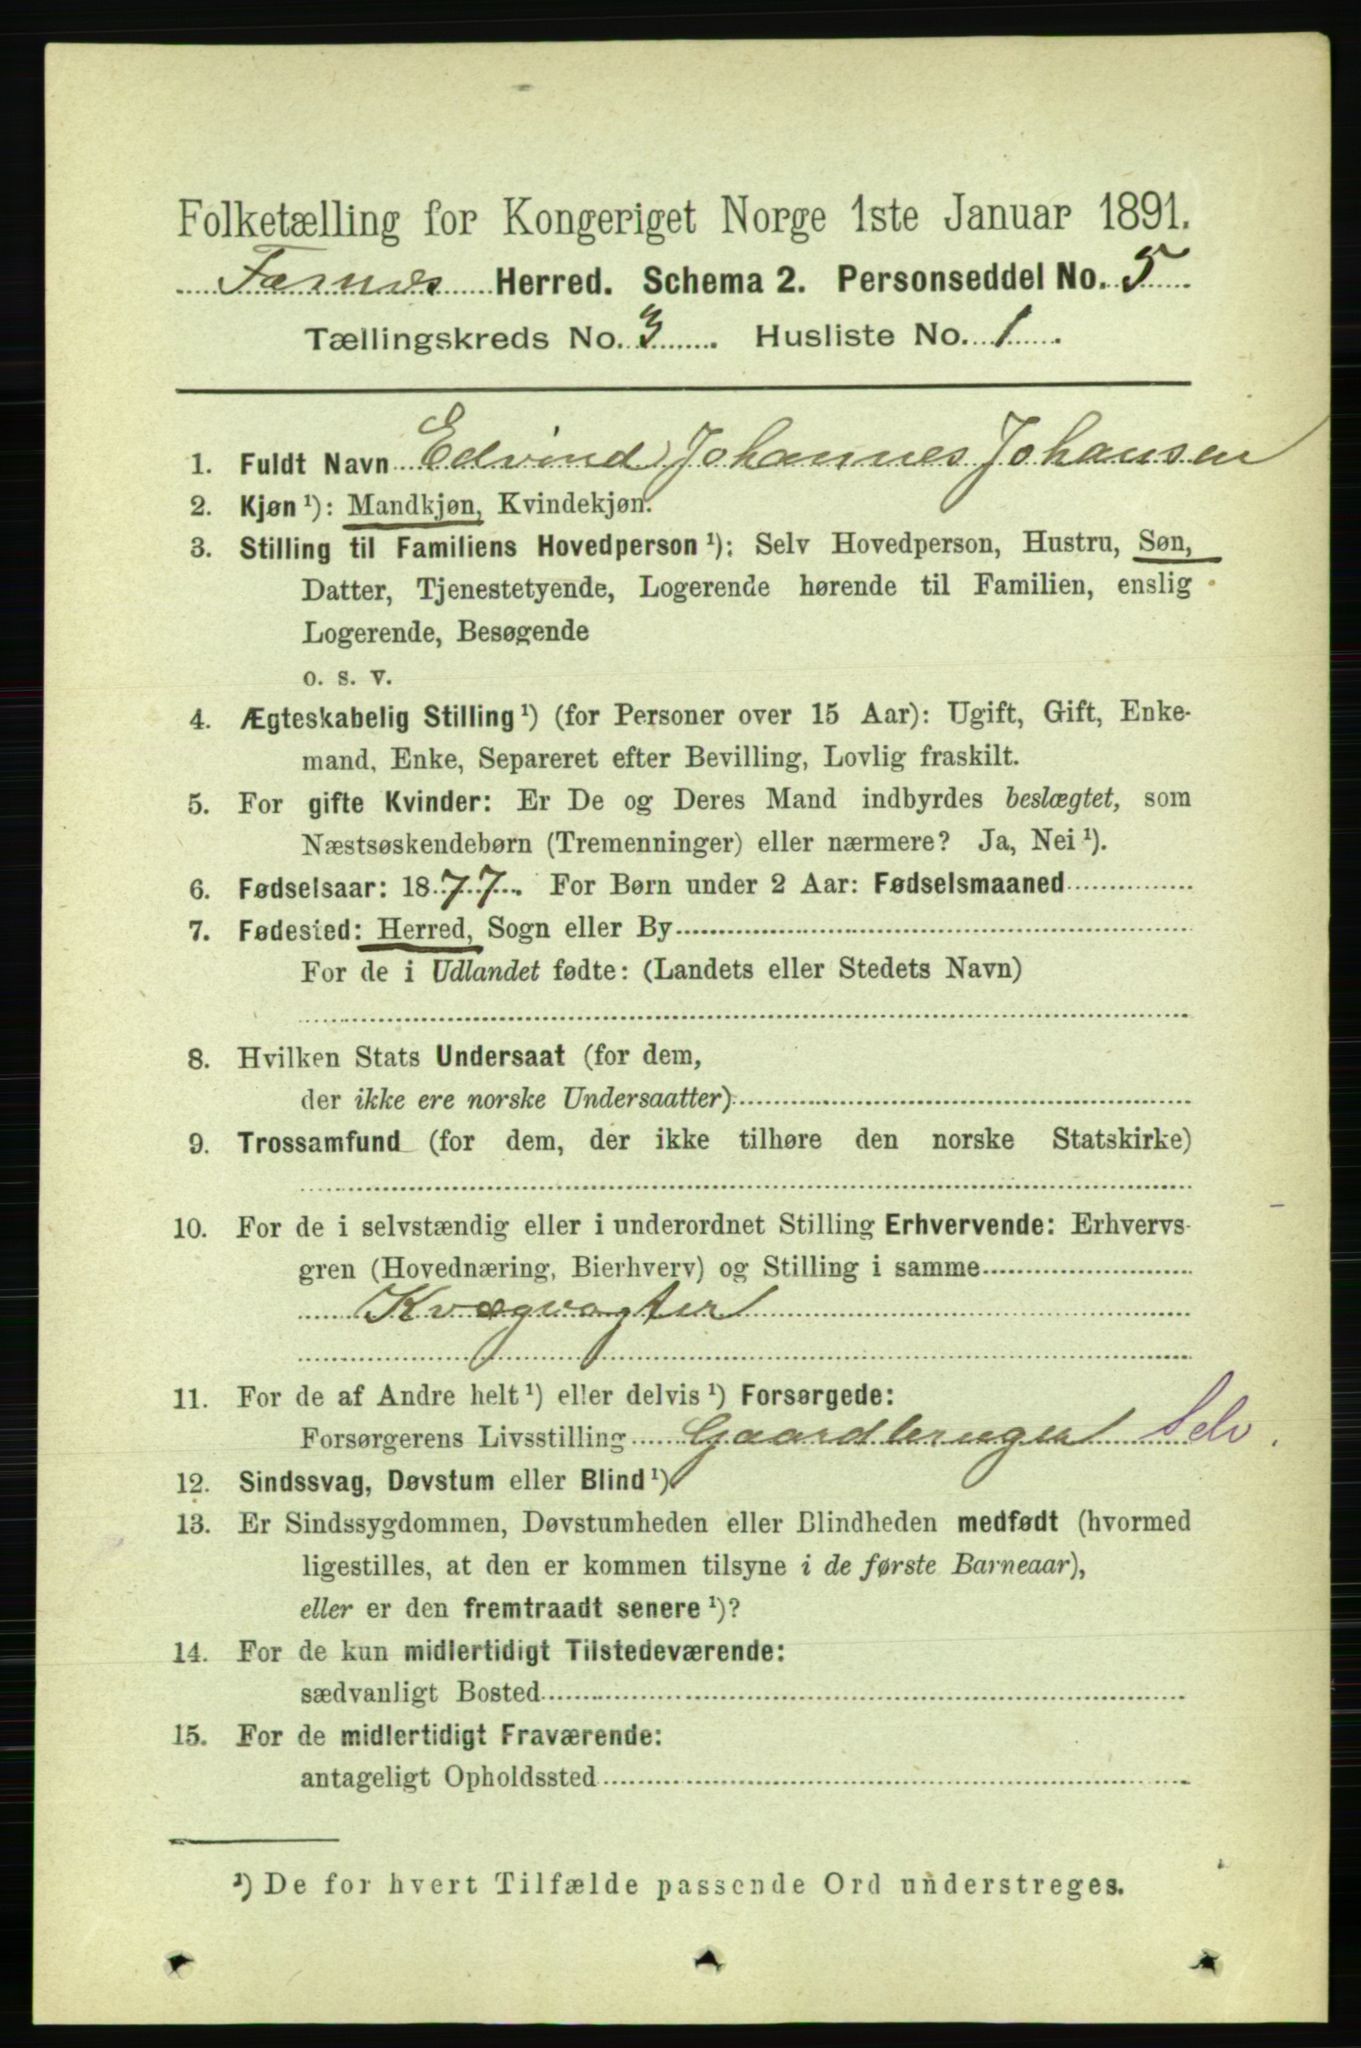 Folketælling for Kongeriget Norge 1ste Januar 1891.
Fosnes Herred. Schema 2. Personseddel No. 5
Tællingskreds No. 3. Husliste No. 1.
1. Fuldt Navn Edvind Johannes Johansen
2. Kjøn ¹): Mandkjøn, Kvindekjøn.
3. Stilling til Familiens Hovedperson ¹): Selv Hovedperson, Hustru, Søn,
Datter, Tjenestetyende, Logerende hørende til Familien, enslig
Logerende, Besøgende
o. s. v.
4. Ægteskabelig Stilling ¹) (for Personer over 15 Aar): Ugift, Gift, Enke-
mand, Enke, Separeret efter Bevilling, Lovlig fraskilt.
5. For gifte Kvinder: Er De og Deres Mand indbyrdes beslægtet, som
Næstsøskendebørn (Tremenninger) eller nærmere? Ja, Nei ¹).
6. Fødselsaar: 1877. For Børn under 2 Aar: Fødselsmaaned
7. Fødested: Herred, Sogn eller By
For de i Udlandet fødte: (Landets eller Stedets Navn)
8. Hvilken Stats Undersaat (for dem,
der ikke ere norske Undersaatter)
9. Trossamfund (for dem, der ikke tilhøre den norske Statskirke)
10. For de i selvstændig eller i underordnet Stilling Erhvervende: Erhvervs-
gren (Hovednæring, Bierhverv) og Stilling i samme
Kvægvagter
11. For de af Andre helt ¹) eller delvis ¹) Forsørgede:
Forsørgerens Livsstilling Gaardbruger Selv.
12. Sindssvag, Døvstum eller Blind ¹)
13. Er Sindssygdommen, Døvstumheden eller Blindheden medfødt (hvormed
ligestilles, at den er kommen tilsyne i de første Barneaar),
eller er den fremtraadt senere ¹)?
14. For de kun midlertidigt Tilstedeværende:
sædvanligt Bosted
15. For de midlertidigt Fraværende:
antageligt Opholdssted
¹) De for hvert Tilfælde passende Ord understreges.